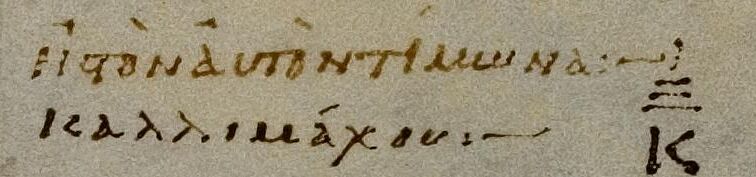 εἰς τὸν ἀυτὸν τίμωνα :—
καλλιμάχου :—